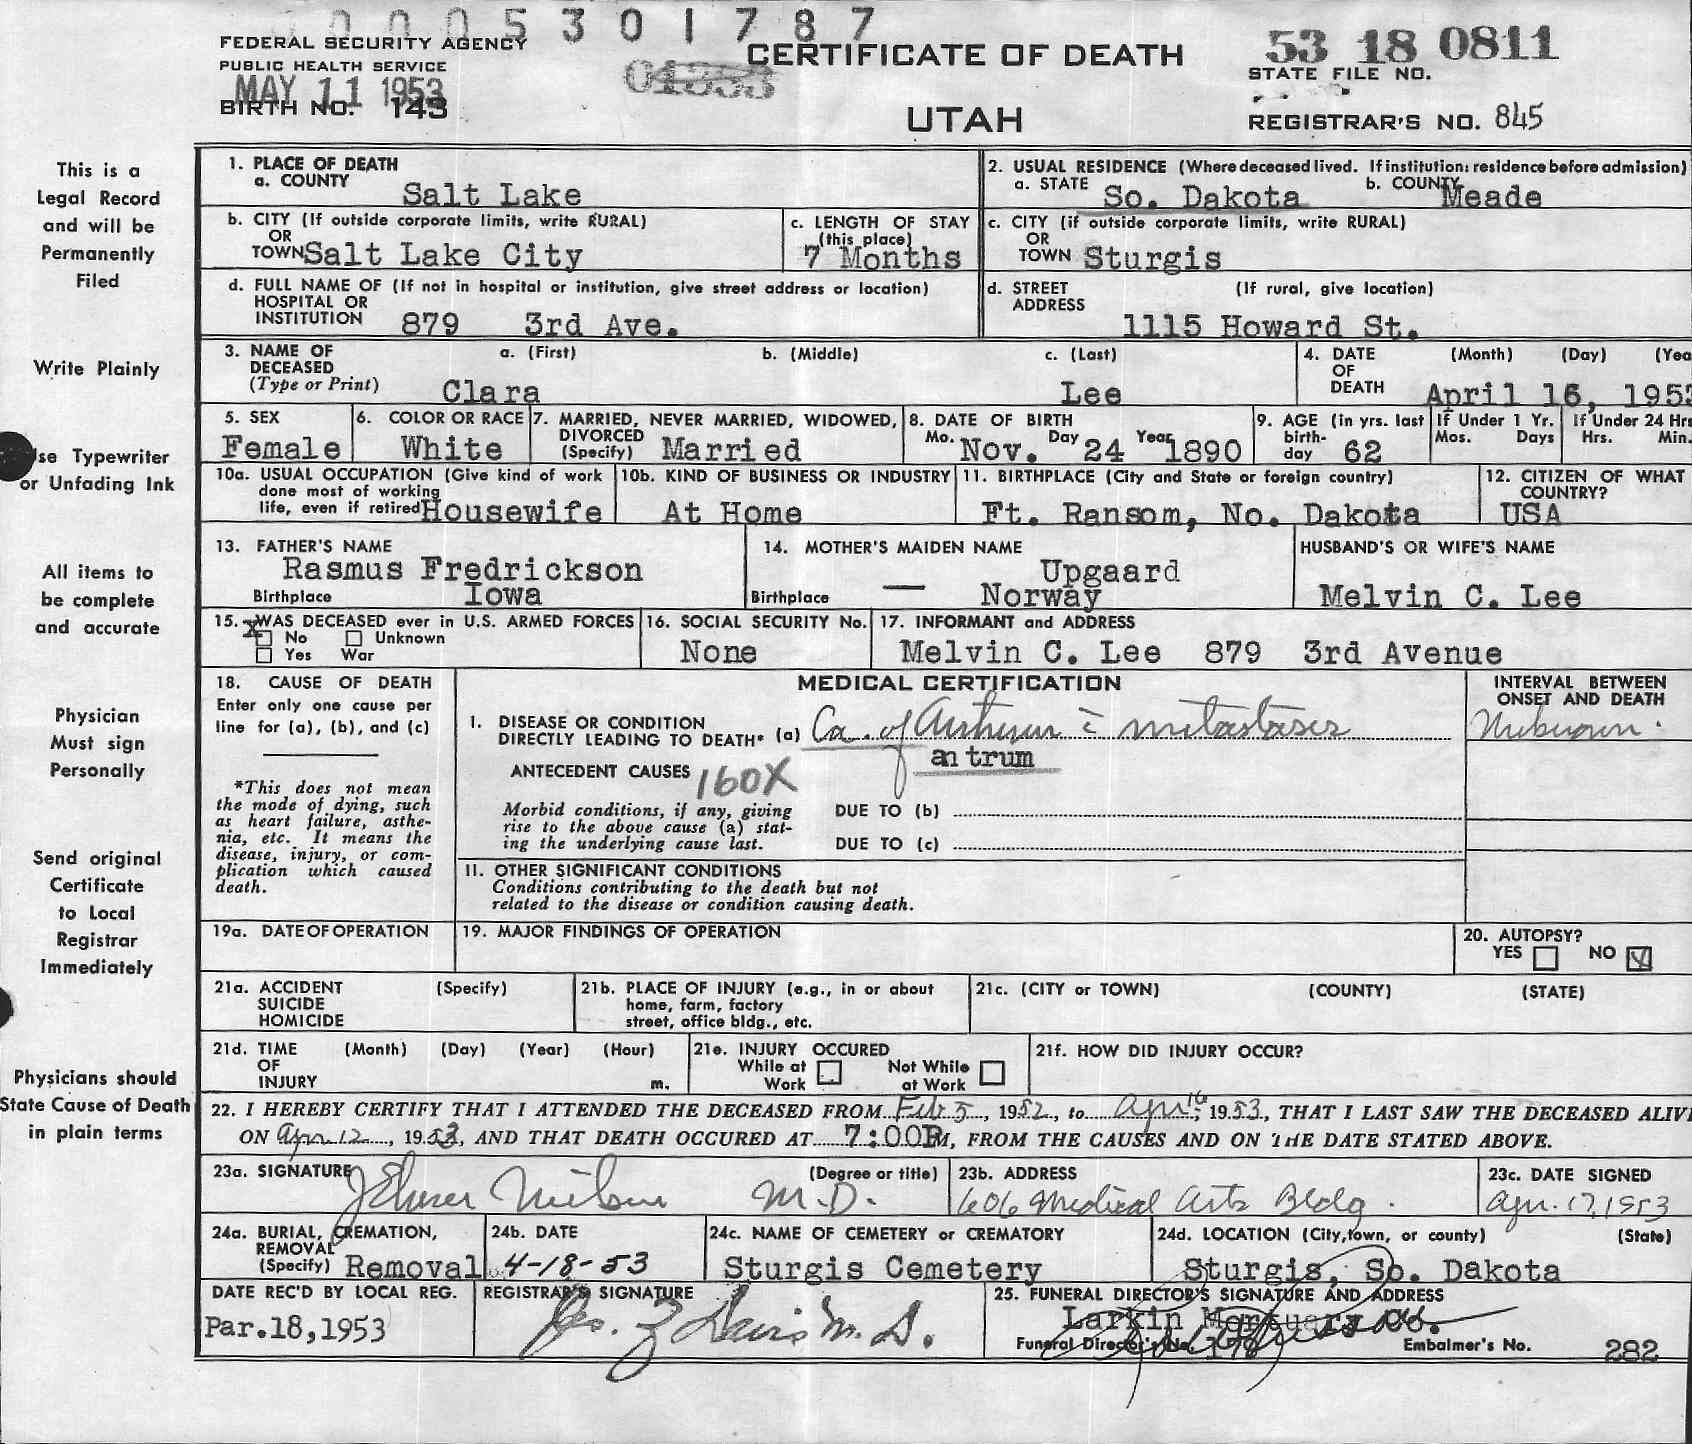 0 0 0 5 3 0 1 7 8 7
FEDERAL SECURITY AGENCY
PUBLIC HEALTH SERVICE
MAY 11 1953
BIRTH NO. 143
CERTIFICATE OF DEATH
UTAH
53 18 0811
STATE FILE NO.
REGISTRAR'S NO. 845
This is a
Legal Record
and will be
Permanently
Filed
Write Plainly
se Typewriter
or Unfading Ink
All items to
be complete
and accurate
Physician
Must sign
Personally
Send original
Certificate
to Local
Registrar
Immediately
Physicians should
State Cause of Death
in plain terms
1. PLACE OF DEATH
a. COUNTY Salt Lake
2. USUAL RESIDENCE (Where deceased lived. If institution: residence before admission)
a. STATE So. Dakota b. COUNTY Meade
b. CITY (If outside corporate limits, write RURAL)
OR
TOWN Salt Lake City
c. LENGTH OF STAY
(this place)
7 Months
c. CITY (if outside corporate limits, write RURAL)
OR
TOWN Sturgis
d. FULL NAME OF (If not in hospital or institution, give street address or location)
HOSPITAL OR
INSTITUTION 879 3rd Ave.
d. STREET (If rural, give location)
ADDRESS
1115 Howard St.
3. NAME OF a. (First) b. (Middle) c. (Last)
DECEASED
(Type or Print) Clara Lee
4. DATE (Month) (Day) (Yea
OF
DEATH April 16, 1953
5. SEX
Female
6. COLOR OR RACE
White
7. MARRIED, NEVER MARRIED, WIDOWED,
DIVORCED
(Specify) Married
8. DATE OF BIRTH
Mo. Nov. Day 24 Year 1890
9. AGE (in yrs. last
birth-
day 62
If Under 1 Yr.
Mos. Days
If Under 24 Hrs
Hrs. Min.
10a. USUAL OCCUPATION (Give kind of work
done most of working
life, even if retired Housewife
10b. KIND OF BUSINESS OR INDUSTRY
At Home
11. BIRTHPLACE (City and State or foreign country)
Ft. Ransom, No. Dakota
12. CITIZEN OF WHAT
COUNTRY?
USA
13. FATHER'S NAME
Rasmus Fredrickson
Birthplace Iowa
14. MOTHER'S MAIDEN NAME
— Upgaard
Birthplace Norway
HUSBAND'S OR WIFE'S NAME
Melvin C. Lee
15. WAS DECEASED ever in U.S. ARMED FORCES
X No Unknown
Yes War
16. SOCIAL SECURITY No.
None
17. INFORMANT and ADDRESS
Melvin C. Lee 879 3rd Avenue
18. CAUSE OF DEATH
Enter only one cause per
line for (a), (b), and (c)
*This does not mean
the mode of dying, such
as heart failure, asthe-
nia, etc. It means the
disease, injury, or com-
plication which caused
death.
MEDICAL CERTIFICATION
1. DISEASE OR CONDITION
DIRECTLY LEADING TO DEATH* (a) Ca. of Anthrum c̄ metastases
antrum
ANTECEDENT CAUSES 160X
Morbid conditions, if any, giving
rise to the above cause (a) stat-
ing the underlying cause last.
DUE TO (b)
DUE TO (c)
INTERVAL BETWEEN
ONSET AND DEATH
Unknown.
11. OTHER SIGNIFICANT CONDITIONS
Conditions contributing to the death but not
related to the disease or condition causing death.
19a. DATE OF OPERATION
19. MAJOR FINDINGS OF OPERATION
20. AUTOPSY?
YES NO
21a. ACCIDENT (Specify)
SUICIDE
HOMICIDE
21b. PLACE OF INJURY (e.g., in or about
home, farm, factory
street, office bldg., etc.
21c. (CITY or TOWN) (COUNTY) (STATE)
21d. TIME (Month) (Day) (Year) (Hour)
OF
INJURY m.
21e. INJURY OCCURED
While at Not While
Work at Work
21f. HOW DID INJURY OCCUR?
22. I HEREBY CERTIFY THAT I ATTENDED THE DECEASED FROM Feb 5, 1952, to Apr 16, 1953, THAT I LAST SAW THE DECEASED ALIV
ON Apr 12, 1953, AND THAT DEATH OCCURED AT 7:00P M, FROM THE CAUSES AND ON THE DATE STATED ABOVE.
23a. SIGNATURE (Degree or title)
M.D.
23b. ADDRESS
606 Medical Arts Bldg.
23c. DATE SIGNED
Apr. 17, 1953
24a. BURIAL, CREMATION,
REMOVAL
(Specify) Removal
24b. DATE
4-18-53
24c. NAME OF CEMETERY or CREMATORY
Sturgis Cemetery
24d. LOCATION (City, town, or county) (State)
Sturgis, So. Dakota
DATE REC'D BY LOCAL REG.
Par.18,1953
REGISTRAR'S SIGNATURE
Geo. Z Davis M.D.
25. FUNERAL DIRECTOR'S SIGNATURE AND ADDRESS
Larkin Mortuary Co.
Funeral Director's No. Embalmer's No. 282